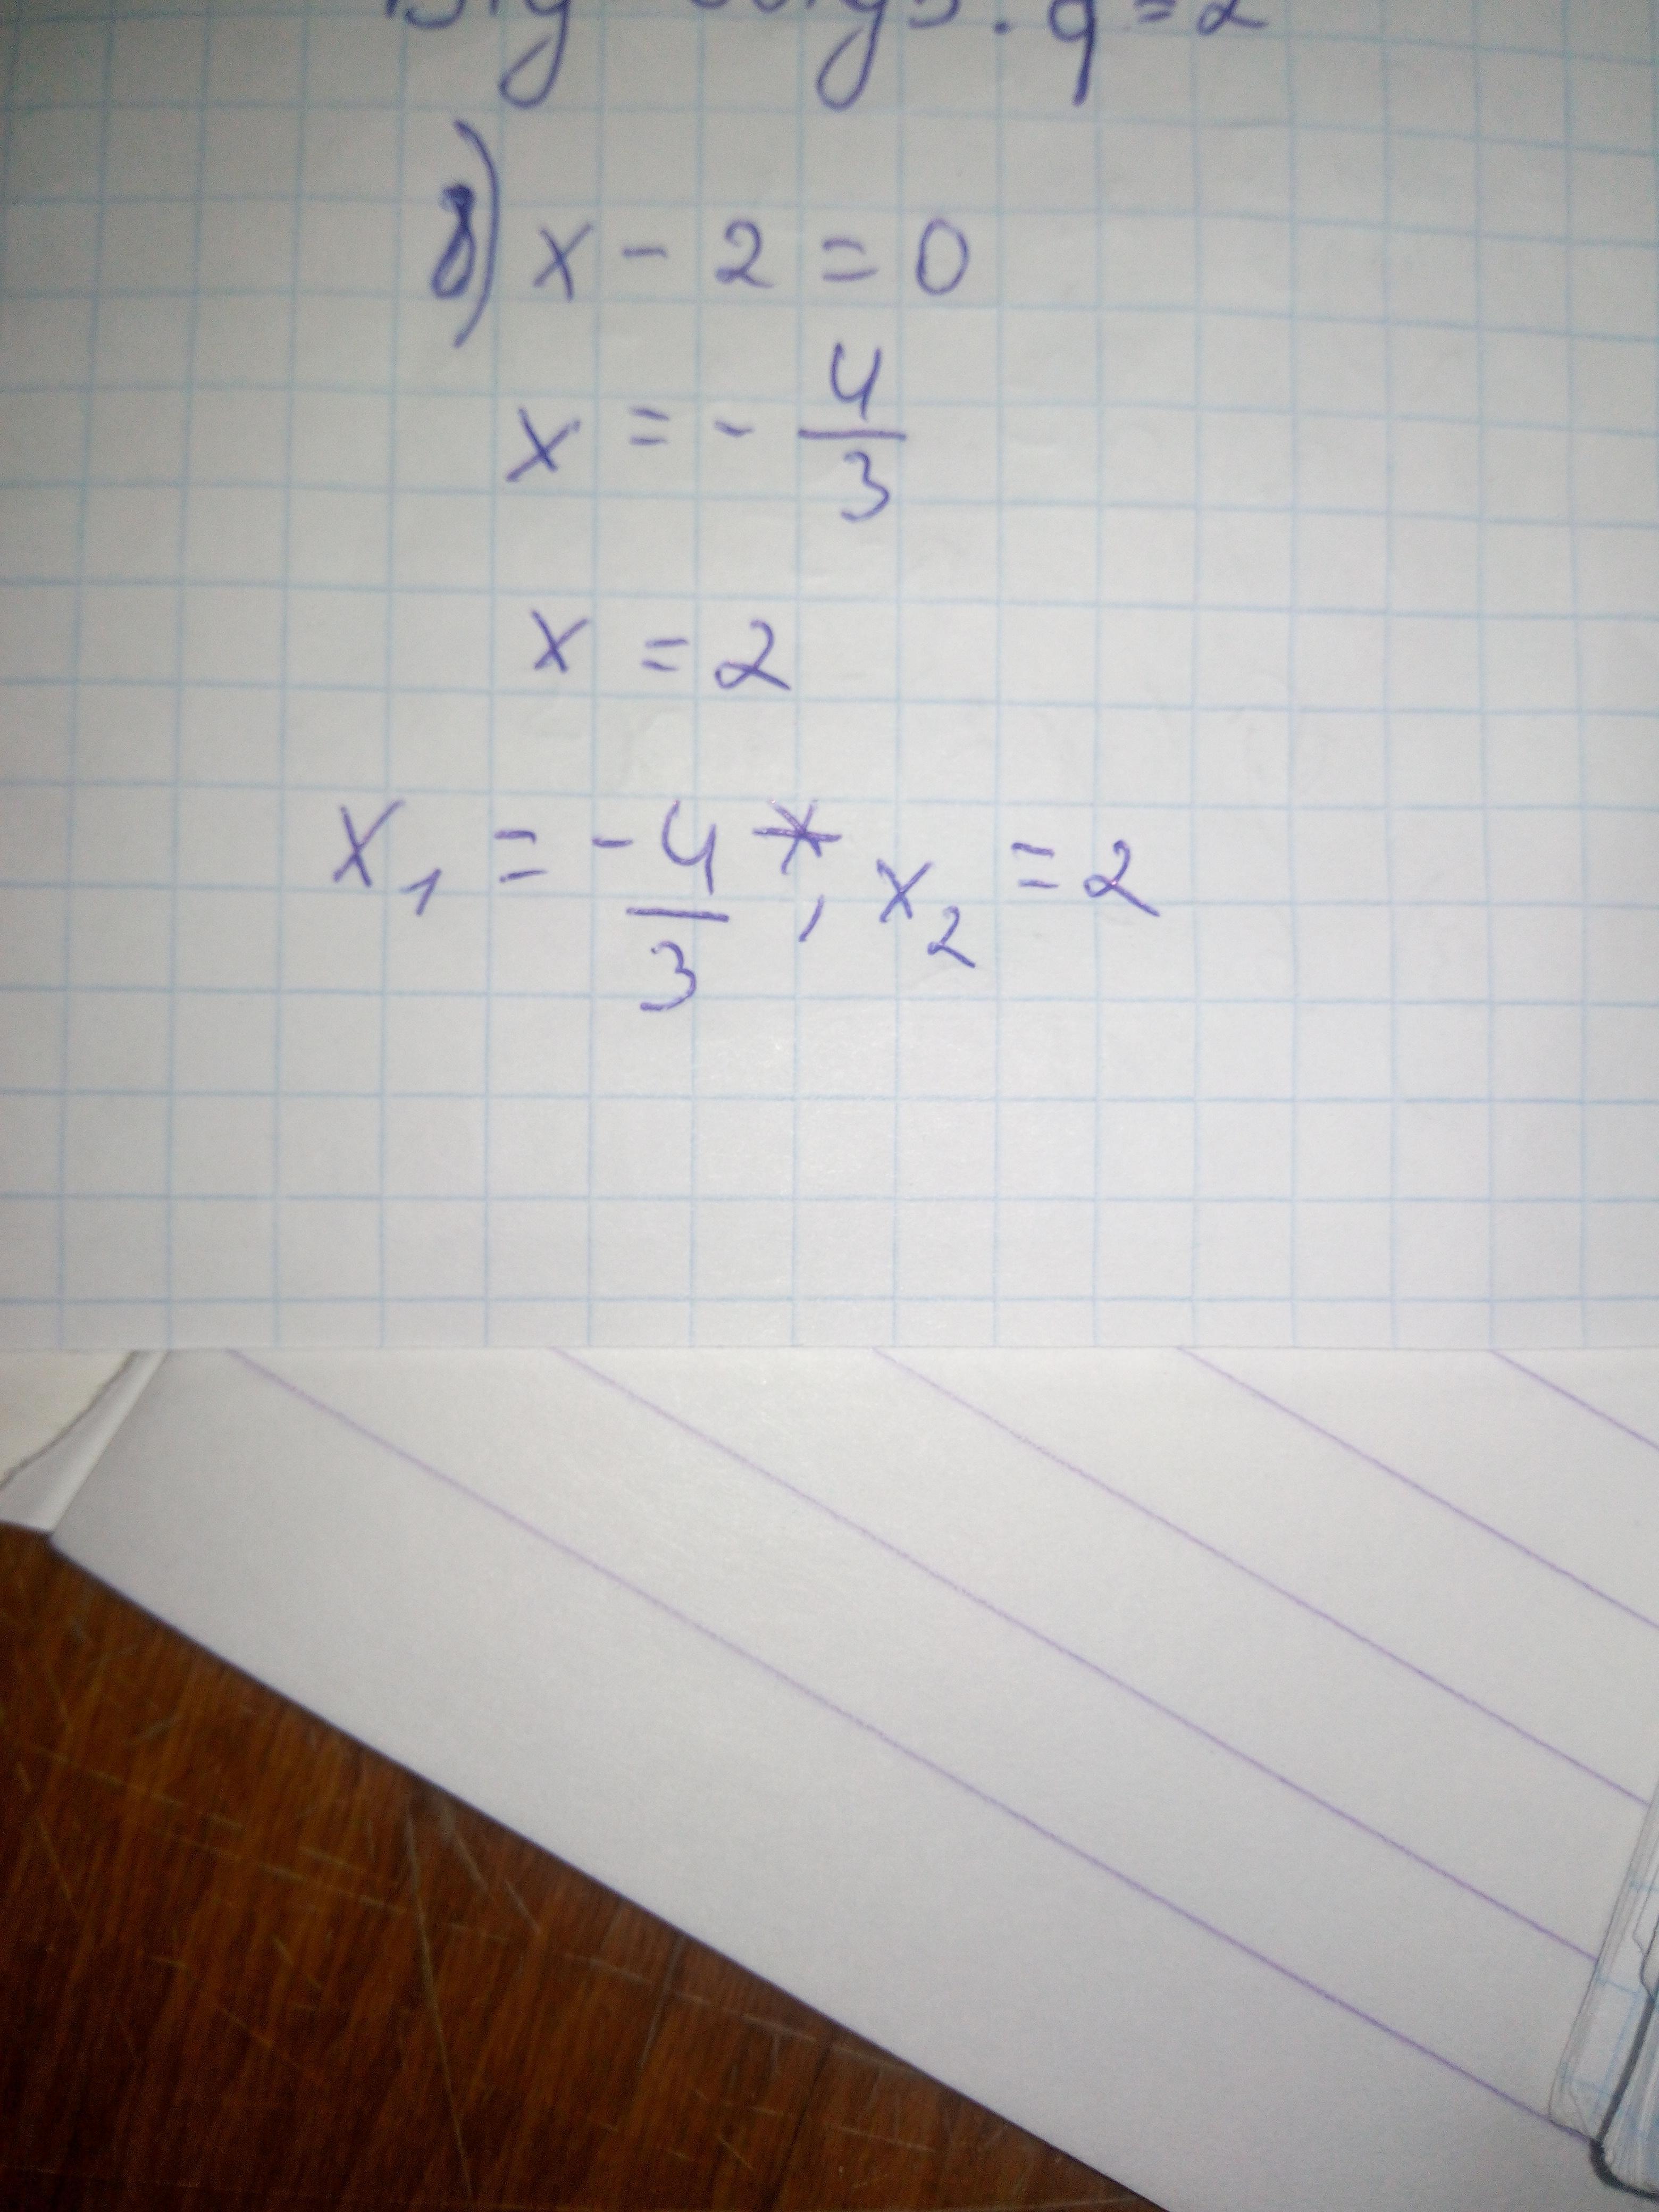 q=2
б) x - 2 = 0
x = - 4/3
x = 2
x₁ = -4/3 , x₂ = 2